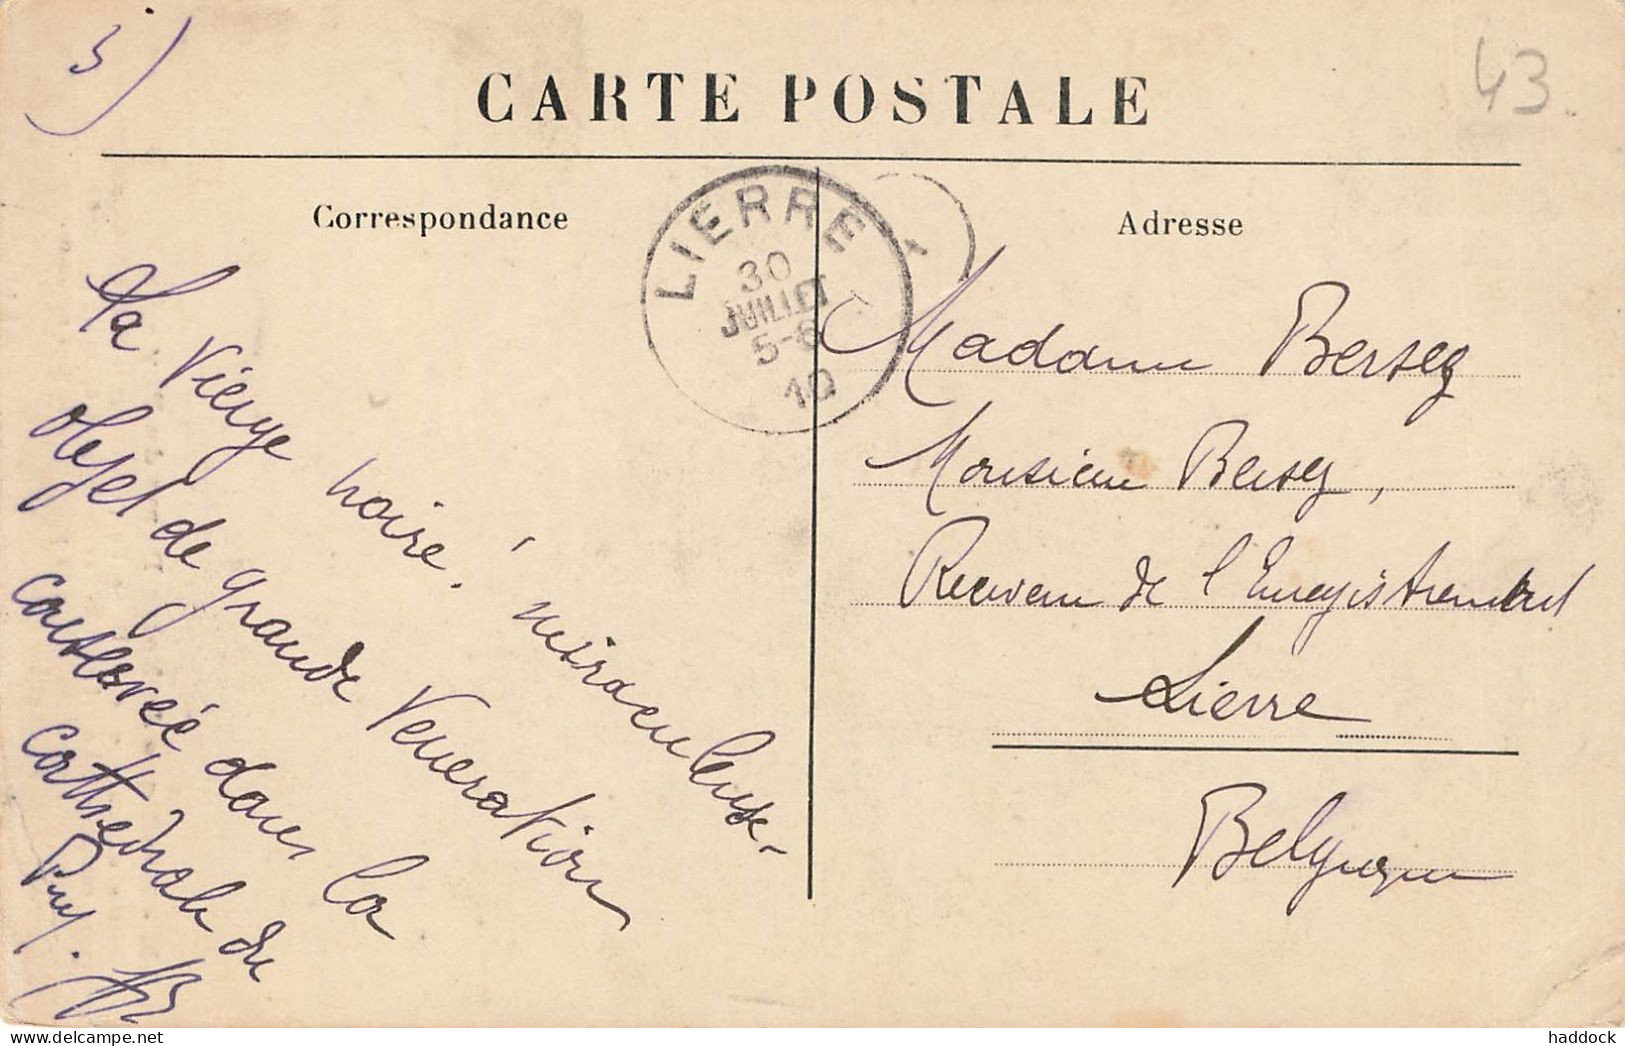 5)
43.
CARTE POSTALE
Correspondance
Adresse
LIERRE
30
JUILLET
5-6
10
La Vierge noire, miraculeuse -
objet de grande Veneration
conservée dans la
cathedrale du
Puy.
Madame Bersez
Monsieur Bersez,
Receveur de l'Enregistrement
Lierre
Belgique
haddock